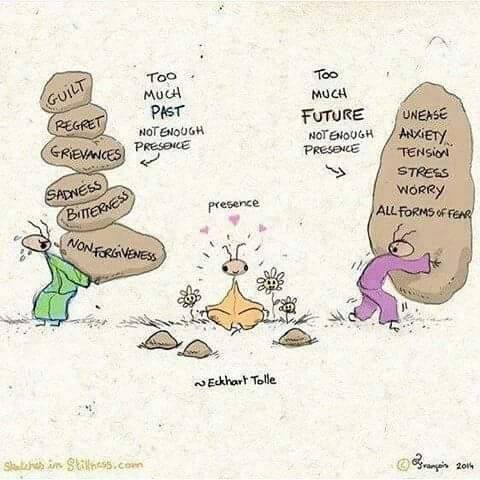 GUILT
REGRET
GRIEVANCES
SADNESS
BITTERNESS
NON FORGIVENESS
TOO
MUCH
PAST
NOT ENOUGH
PRESENCE
presence
Too
MUCH
FUTURE
NOT ENOUGH
PRESENCE
UNEASE
ANXIETY
TENSION
STRESS
WORRY
ALL FORMS OF FEAR
~ Eckhart Tolle
Sketches in Stillness.com
© François 2014